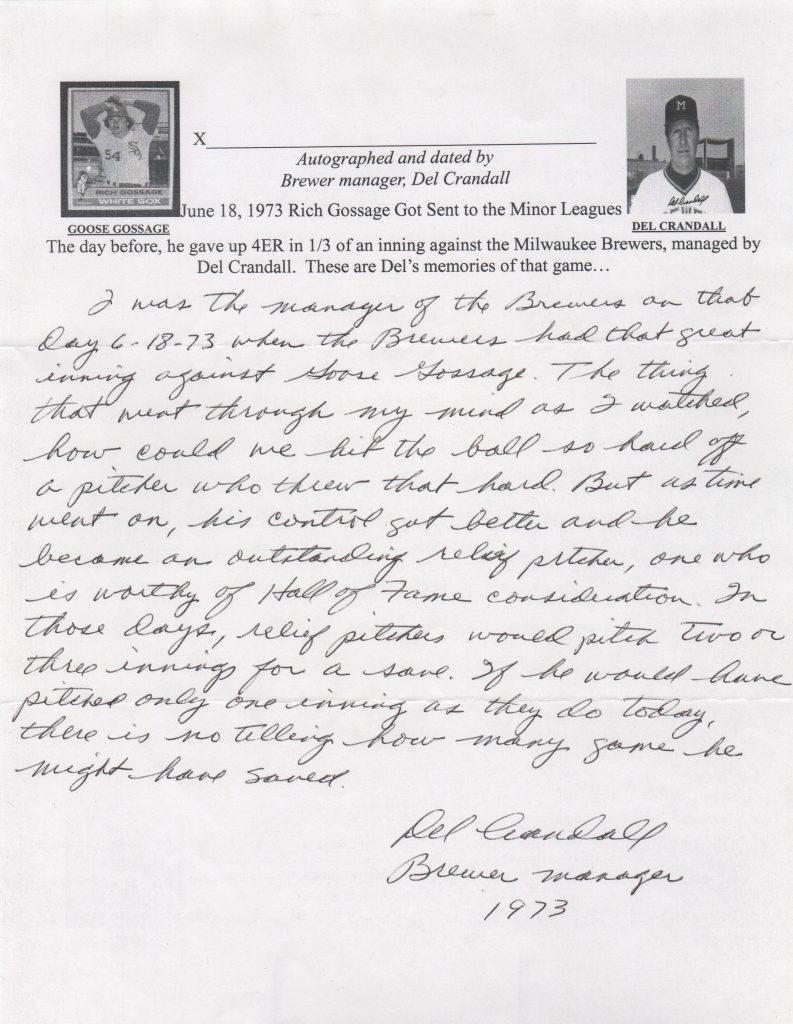 54
RICH GOSSAGE
WHITE SOX
GOOSE GOSSAGE
X
Autographed and dated by
Brewer manager, Del Crandall
M
Del Crandall
DEL CRANDALL
June 18, 1973 Rich Gossage Got Sent to the Minor Leagues
The day before, he gave up 4ER in 1/3 of an inning against the Milwaukee Brewers, managed by
Del Crandall. These are Del's memories of that game…
I was the manager of the Brewers on that
day 6-18-73 when the Brewers had that great
inning against Goose Gossage. The thing
that went through my mind as I watched,
how could we hit the ball so hard off
a pitcher who threw that hard. But as time
went on, his control got better and he
became an outstanding relief pitcher, one who
is worthy of Hall of Fame consideration. In
those days, relief pitchers would pitch two or
three innings for a save. If he would have
pitched only one inning as they do today,
there is no telling how many game he
might have saved.
Del Crandall
Brewer manager
1973